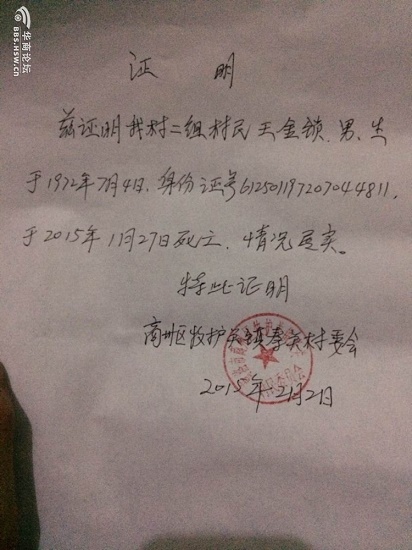 华商论坛
BBS.HSW.CN
证 明
兹证明我村二组村民王金锁、男、生
于1972年7月4日、身份证号612501197207044811,
于2015年11月27日死亡、情况属实。
特此证明
商州区牧护关镇秦关村委会
2015年12月2日